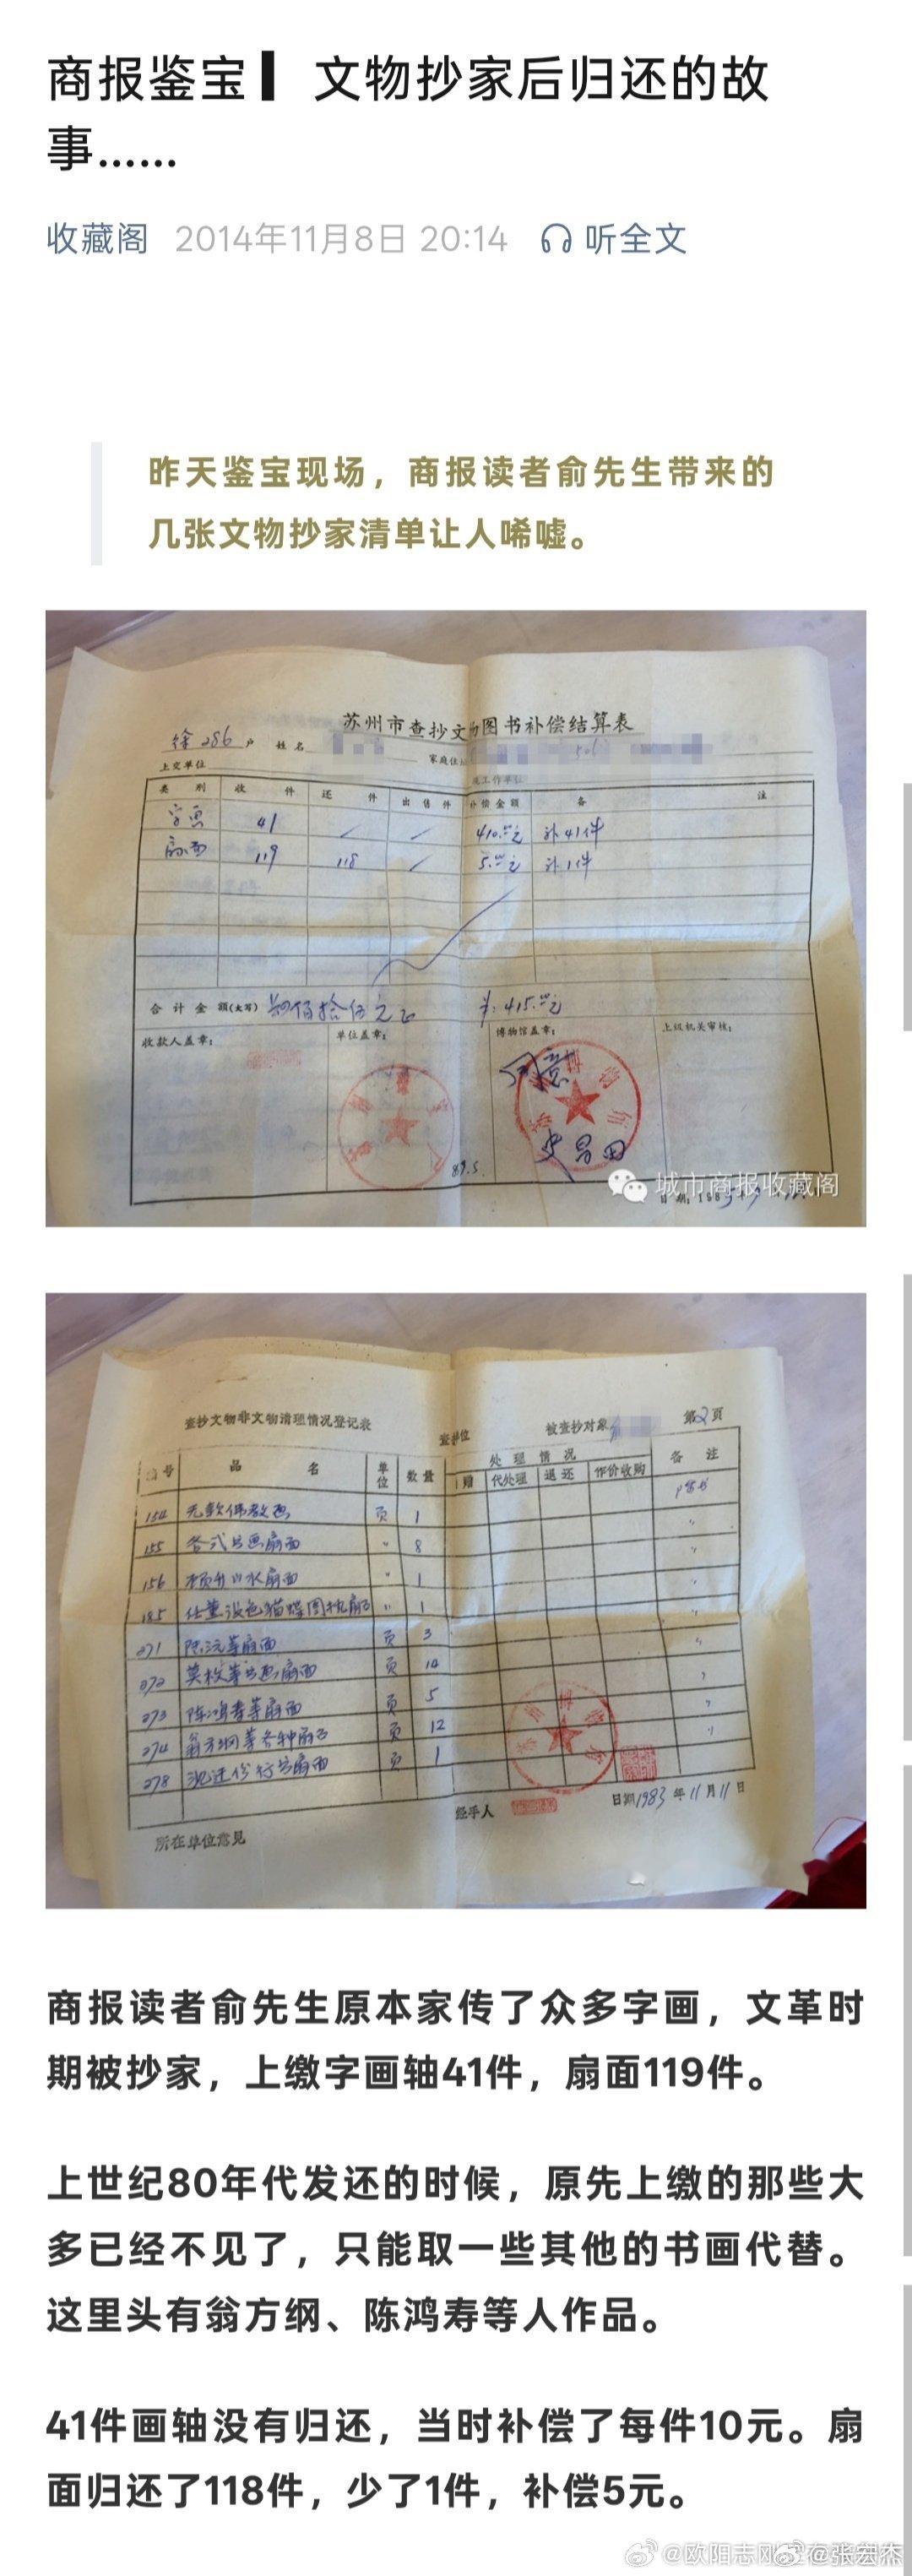 商报鉴宝 ▎ 文物抄家后归还的故
事……
收藏阁 2014年11月8日 20:14 听全文
昨天鉴宝现场，商报读者俞先生带来的
几张文物抄家清单让人唏嘘。
苏州市查抄文物图书补偿结算表
徐286户 姓名 家庭住
上交单位 工作单位
类别 收件 还件 出售件 补偿金额 备注
字画 41 / / 410.00元 补41件
扇面 119 118 / 5.00元 补1件
合计金额(大写) 肆佰拾伍元正 ¥:415.00元
收款人盖章: 单位盖章: 博物馆盖章: 上级机关审核:
同意
史昌田
城市商报收藏阁
查抄文物非文物清理情况登记表 被查抄对象 第2页
编号 品名 单位 数量 处理情况 备注
代处理 退还 作价收购
154 无款佛教画 页 1
155 各式书画扇面 " 8
156 水扇面 " 1
185 任薰设色猫蝶图扇面 " 1
271 陈沅等扇面 页 3
272 莫枚等书画扇面 页 14
273 陈鸿寿等扇面 页 5
274 翁方纲等各种扇面 页 12
278 行书扇面 页 1
经手人 日期1983年11月11日
所在单位意见
商报读者俞先生原本家传了众多字画，文革时
期被抄家，上缴字画轴41件，扇面119件。
上世纪80年代发还的时候，原先上缴的那些大
多已经不见了，只能取一些其他的书画代替。
这里头有翁方纲、陈鸿寿等人作品。
41件画轴没有归还，当时补偿了每件10元。扇
面归还了118件，少了1件，补偿5元。
@欧阳志刚 @张宏杰